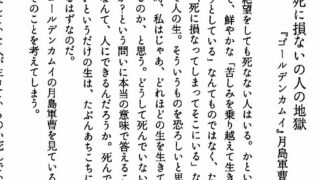 死に損ないの人の地獄
『ゴールデンカムイ』月島軍曹
絶望をしても死なない人はいる。かとい
、鮮やかな「苦しみを乗り越えて生き
うとしている」なんてものではなく、た
死に損なってしまってそこにいる」な
う人の生。そういうものを恐ろしいと思
、私はじっ、どれほどの生を生きて
ものか、と思う。どうして死んでいない
？という問いに本当の意味で答えるこ
なんて、人にできるんだろうか。死んで
いというだけの生は、たぶんあちこちに
るはずなのだ。
ールデンカムイの月島軍曹を見ている
のことを考えてしまう。